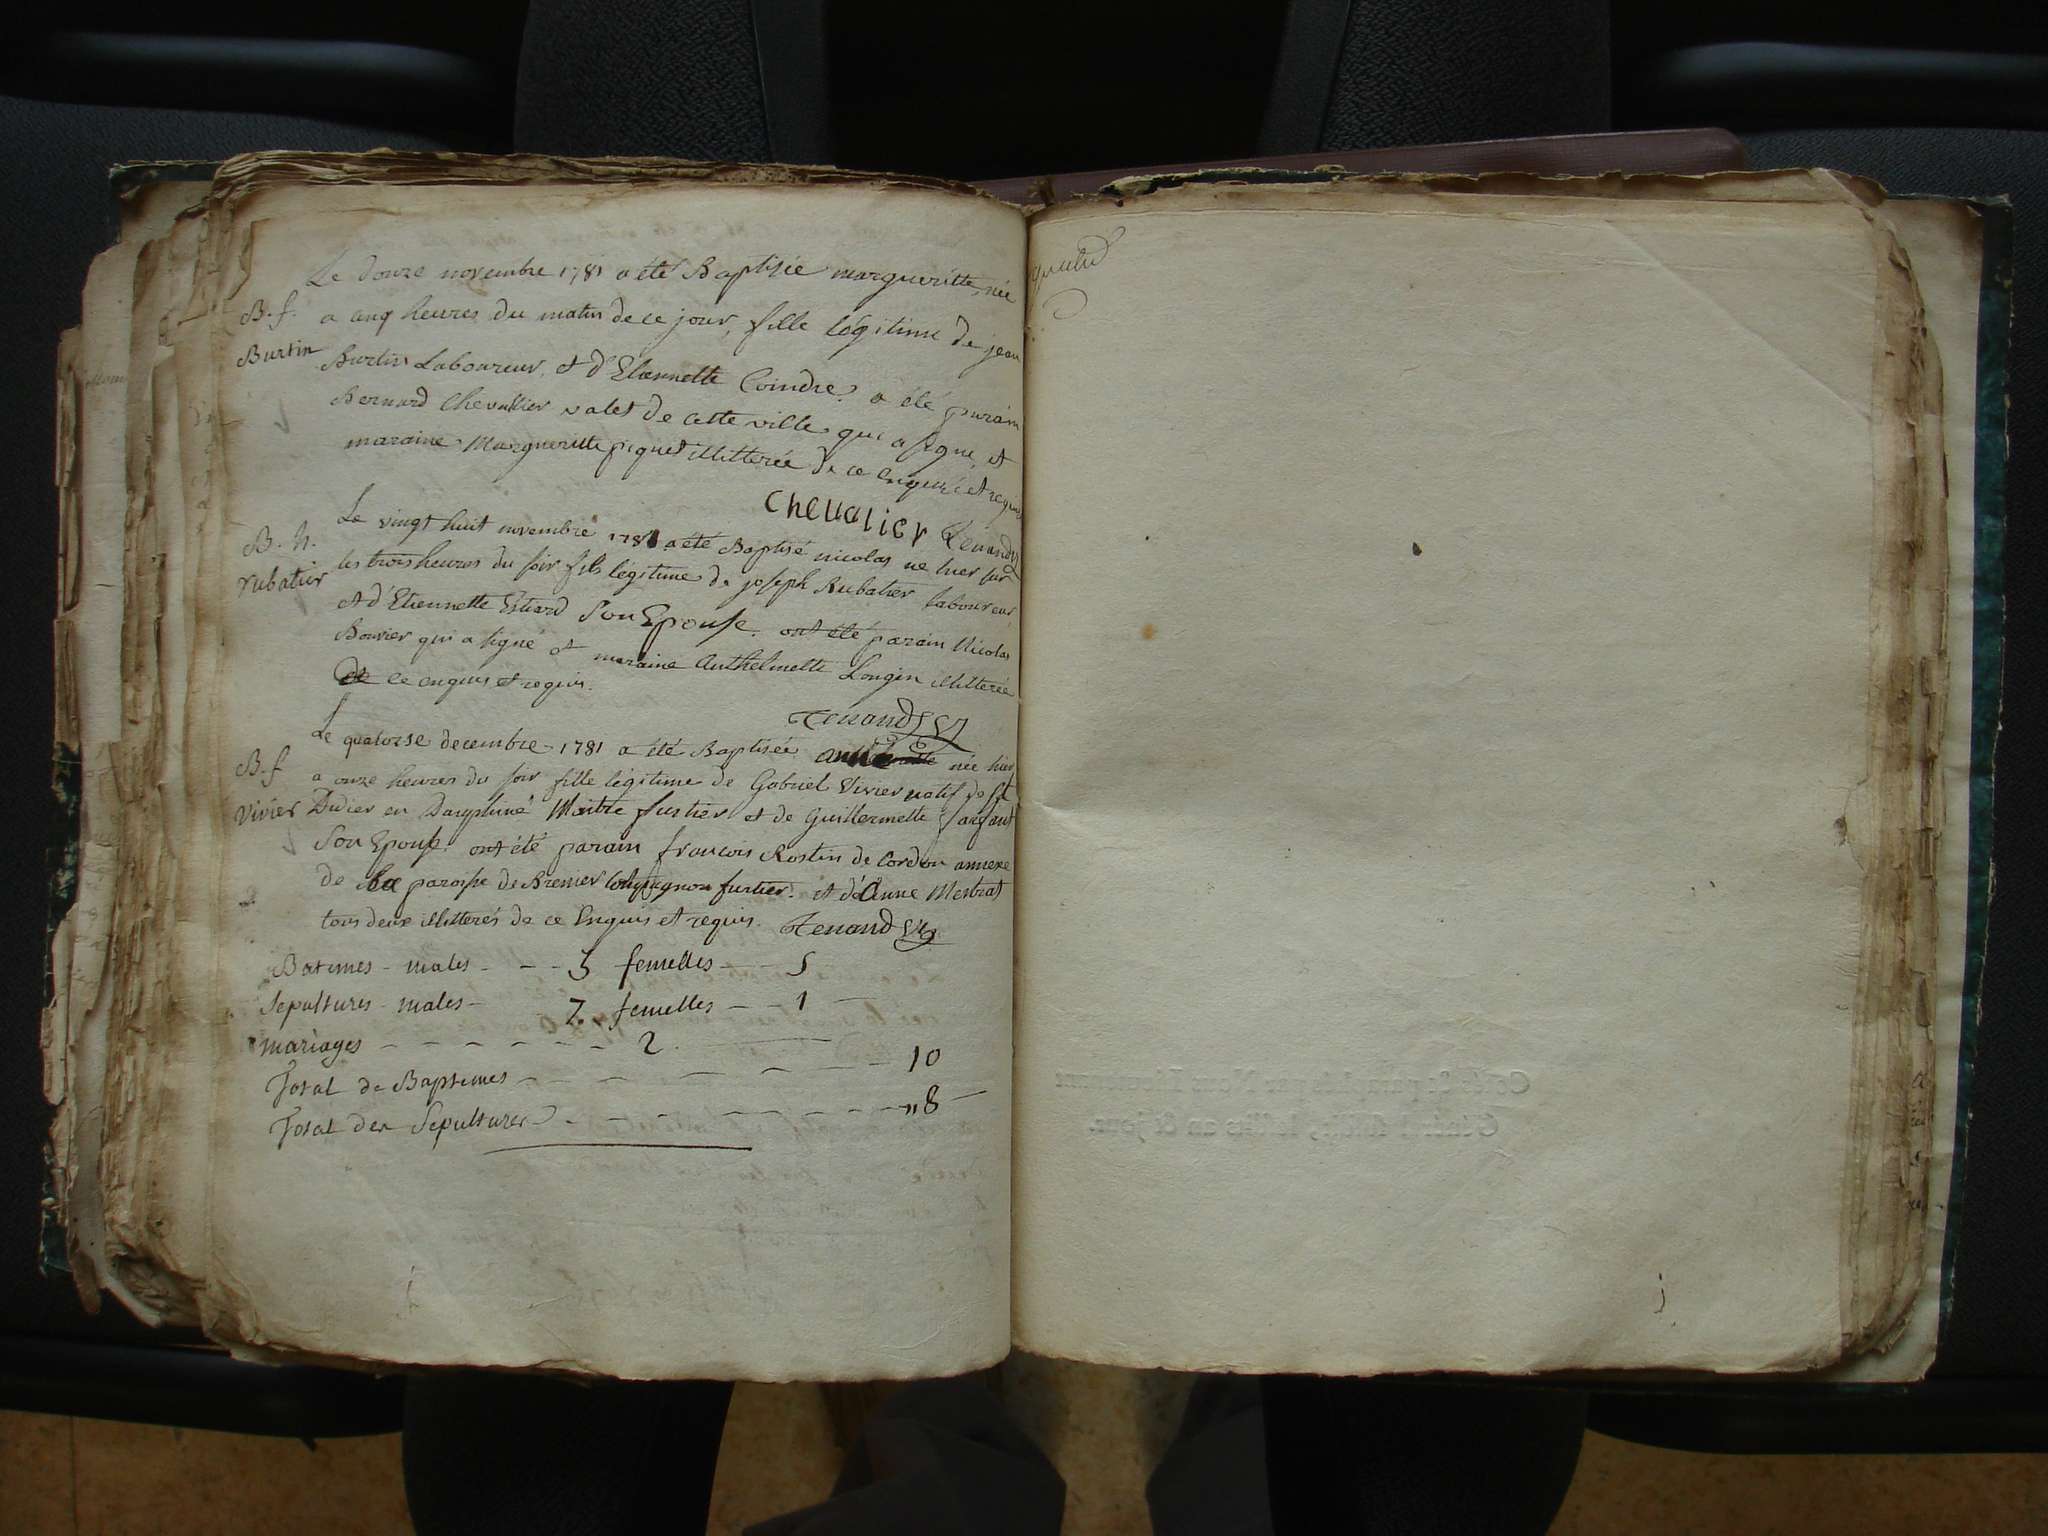 Le douze novembre 1781 a été Baptisée margueritte, née
B. f. a cinq heures du matin de ce jour, fille légitime de jean
Burtin Burtin Laboureur, et d'Etiennette Coindre. a été parain
Bernard Chevallier valet de cette ville qui a signe, et
maraine Margueritte piquet illitterée de ce enquise et requise
Chevalier Tenand
Le vingt huit novembre 1781 a été Baptisé nicolas ne hier sur
B. h. les trois heures du soir fils légitime de joseph Rubatier laboureur
rubatier et d'Etiennette Estiard Son Epouse. ont été parain Nicolas
Bouvier qui a signé et maraine Anthelmette Longin illitterée
de ce enquis et requis.
Tenand
Le quatorse decembre 1781 a été Baptisée née hier
B. f. a onze heures du soir fille légitime de Gabriel Vivier natif de St
Vivier Didier en Dauphiné Maitre fustier et de Guillermette
Son Epouse. ont été parain francois Rostin de Cordon annexe
de la paroisse de Bremier compagnon fustier. et d'Anne Mestrat
tous deux illitterés de ce Enquis et requis. Tenand
Batemes - males - - - 5 femelles - - 5
Sepultures - males - 7. femelles - - 1 -
mariages - - - - - - 2.
Total de Baptemes - - - - - - - 10
Total des Sepultures - - - - - - - "8
j